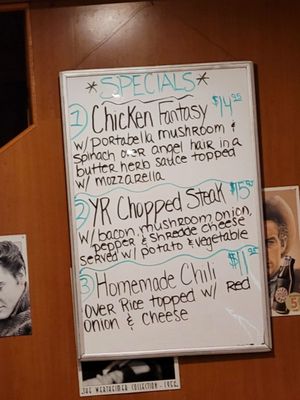 *SPECIALS*
1) Chicken Fantasy $14.95
w/ portabella mushroom &
spinach over angel hair in a
butter herb sauce topped
w/ mozzarella
2) YR Chopped Steak $15.95
w/ bacon, mushroom, onion,
pepper & shredde cheese
served w/ potato & vegetable
3) Homemade Chili $11.95
over Rice topped w/ Red
onion & cheese
THE WERTHEIMER COLLECTION